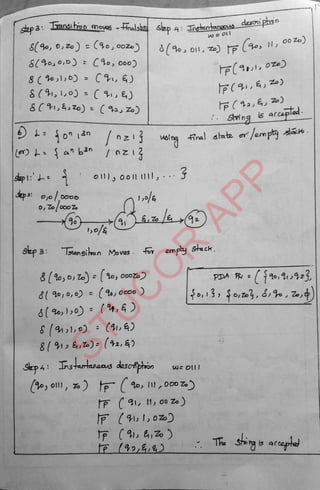 Step 3: Transition moves - Final state
δ(q0, 0, Z0) = (q0, 00Z0)
δ(q0, 0, 0) = (q0, 000)
δ(q0, 1, 0) = (q1, ε)
δ(q1, 1, 0) = (q1, ε)
δ(q1, ε, Z0) = (q2, Z0)
Step 4: Instantaneous description
w = 011
δ(q0, 011, Z0) ⊢P (q0, 11, 00Z0)
⊢P (q1, 1, 0Z0)
⊢P (q1, ε, Z0)
⊢P (q2, ε, Z0)
∴ String is accepted.
6) L = { 0ⁿ 1³ⁿ / n ≥ 1 } using final state or/empty stack.
(or) L = { aⁿ b³ⁿ / n ≥ 1 }
Step 1: L = { 0111, 00111111, ... }
Step 2:
0,0/0000
0,Z0/000Z0
1,0/ε
q0
1,0/ε
q1
ε,Z0/ε
q2
Step 3: Transition Moves for empty Stack.
δ(q0, 0, Z0) = (q0, 000Z0)
δ(q0, 0, 0) = (q0, 0000)
δ(q0, 1, 0) = (q1, ε)
δ(q1, 1, 0) = (q1, ε)
δ(q1, ε, Z0) = (q2, ε)
PDA PN = ( { q0, q1, q2 },
{0, 1}, {0, Z0}, δ, q0, Z0, ϕ )
Step 4: Instantaneous description w = 0111
(q0, 0111, Z0) ⊢P (q0, 111, 000Z0)
⊢P (q1, 11, 00Z0)
⊢P (q1, 1, 0Z0)
⊢P (q1, ε, Z0)
⊢P (q2, ε, ε)
∴ The string is accepted
STUCOR APP